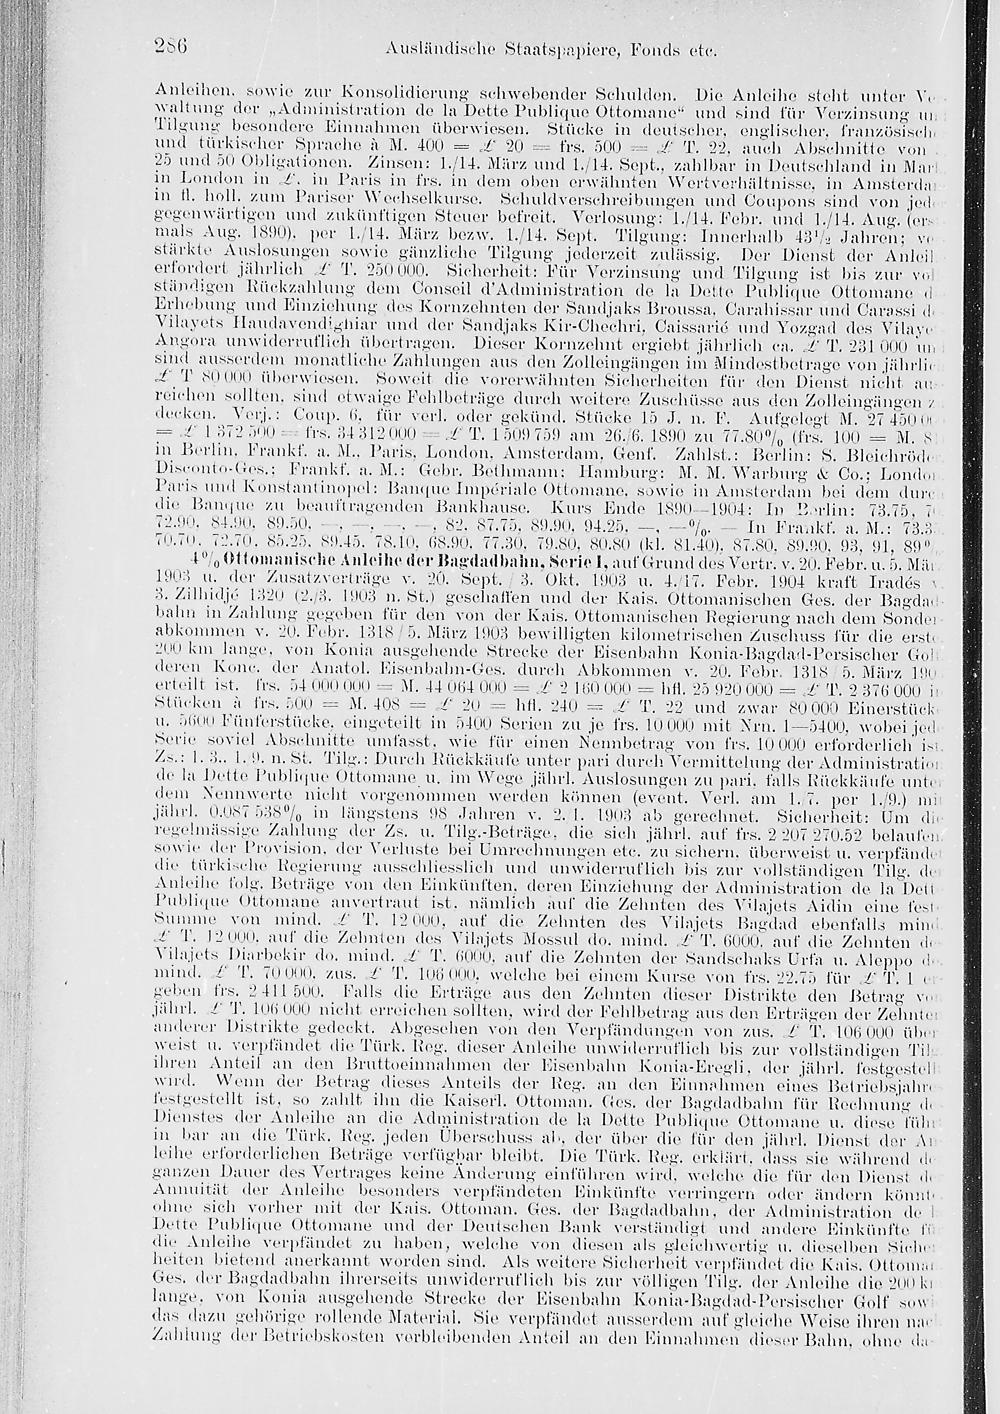 286 Ausländische Staatspapiere, Fonds etc.
Anleihen, sowie zur Konsolidierung schwebender Schulden. Die Anleihe steht unter
waltung der „Administration de la Dette Publique Ottomane“ und sind für Verzinsung
Tilgung besondere Einnahmen überwiesen. Stücke in deutscher, englischer, französisch
und türkischer Sprache à M. 400 = £ 20 = frs. 500 = £ T. 22, auch Abschnitte von
25 und 50 Obligationen. Zinsen: 1./14. März und 1./14. Sept., zahlbar in Deutschland in
in London in £, in Paris in frs. in dem oben erwähnten Wertverhältnisse, in Amsterda
in fl. holl. zum Pariser Wechselkurse. Schuldverschreibungen und Coupons sind von jed
gegenwärtigen und zukünftigen Steuer befreit. Verlosung: 1./14. Febr. und 1./14. Aug. (er
mals Aug. 1890), per 1./14. März bezw. 1./14. Sept. Tilgung: Innerhalb 43½ Jahren;
stärkte Auslosungen sowie gänzliche Tilgung jederzeit zulässig. Der Dienst der Anleih
erfordert jährlich £ T. 250 000. Sicherheit: Für Verzinsung und Tilgung ist bis zur vol
ständigen Rückzahlung dem Conseil d'Administration de la Dette Publique Ottomane d
Erhebung und Einziehung des Kornzehnten der Sandjaks Broussa, Carahissar und Carassi d
Vilayets Haudavendighiar und der Sandjaks Kir-Chechri, Caissarié und Yozgad des Vilaye
Angora unwiderruflich übertragen. Dieser Kornzehnt ergiebt jährlich ca. £ T. 231 000 un
sind ausserdem monatliche Zahlungen aus den Zolleingängen im Mindestbetrage von jährli
£ T 80 000 überwiesen. Soweit die vorerwähnten Sicherheiten für den Dienst nicht au
reichen sollten, sind etwaige Fehlbeträge durch weitere Zuschüsse aus den Zolleingängen z
decken. Verj.: Coup. 6, für verl. oder gekünd. Stücke 15 J. n. F. Aufgelegt M. 27 450 0
= £ 1 372 500 = frs. 34 312 000 = £ T. 1 509 759 am 26./6. 1890 zu 77.80% (frs. 100 = M. 8
in Berlin, Frankf. a. M., Paris, London, Amsterdam, Genf. Zahlst.: Berlin: S. Bleichröde
Disconto-Ges.; Frankf. a. M.: Gebr. Bethmann; Hamburg: M. M. Warburg & Co.; Londo
Paris und Konstantinopel: Banque Impériale Ottomane, sowie in Amsterdam bei dem durc
die Banque zu beauftragenden Bankhause. Kurs Ende 1890—1904: In Berlin: 73.75, 7
72.90, 84.90, 89.50, —, —, —, —, 82, 87.75, 89.90, 94.25, —, —%. — In Frankf. a. M.: 73.3
70.70, 72.70, 85.25, 89.45, 78.10, 68.90, 77.30, 79.80, 80.80 (kl. 81.40), 87.80, 89.90, 93, 91, 89%
4% Ottomanische Anleihe der Bagdadbahn, Serie I, auf Grund des Vertr. v. 20. Febr. u. 5. Mär
1903 u. der Zusatzverträge v. 20. Sept. / 3. Okt. 1903 u. 4./17. Febr. 1904 kraft Iradés v
3. Zilhidjé 1320 (2./3. 1903 n. St.) geschaffen und der Kais. Ottomanischen Ges. der Bagdad-
bahn in Zahlung gegeben für den von der Kais. Ottomanischen Regierung nach dem Sonder-
abkommen v. 20. Febr. 1318 / 5. März 1903 bewilligten kilometrischen Zuschuss für die erste
200 km lange, von Konia ausgehende Strecke der Eisenbahn Konia-Bagdad-Persischer Gol
deren Konc. der Anatol. Eisenbahn-Ges. durch Abkommen v. 20. Febr. 1318 / 5. März 190
erteilt ist. frs. 54 000 000 = M. 44 064 000 = £ 2 160 000 = hfl. 25 920 000 = £ T. 2 376 000 i
Stücken à frs. 500 = M. 408 = £ 20 = hfl. 240 = £ T. 22 und zwar 80 000 Einerstück
u. 5600 Fünferstücke, eingeteilt in 5400 Serien zu je frs. 10 000 mit Nrn. 1—5400, wobei jed
Serie soviel Abschnitte umfasst, wie für einen Nennbetrag von frs. 10 000 erforderlich is
Zs.: 1./3., 1./9. n. St. Tilg.: Durch Rückkäufe unter pari durch Vermittelung der Administration
de la Dette Publique Ottomane u. im Wege jährl. Auslosungen zu pari, falls Rückkäufe unte
dem Nennwerte nicht vorgenommen werden können (event. Verl. am 1./7. per 1./9.) mi
jährl. 0.087 538% in längstens 98 Jahren v. 2./1. 1903 ab gerechnet. Sicherheit: Um di
regelmässige Zahlung der Zs. u. Tilg.-Beträge, die sich jährl. auf frs. 2 207 270.52 belaufen
sowie der Provision, der Verluste bei Umrechnungen etc. zu sichern, überweist u. verpfändet
die türkische Regierung ausschliesslich und unwiderruflich bis zur vollständigen Tilg. de
Anleihe folg. Beträge von den Einkünften, deren Einziehung der Administration de la Dett
Publique Ottomane anvertraut ist, nämlich auf die Zehnten des Vilajets Aidin eine fest
Summe von mind. £ T. 12 000, auf die Zehnten des Vilajets Bagdad ebenfalls mind.
£ T. 12 000, auf die Zehnten des Vilajets Mossul do. mind. £ T. 6000, auf die Zehnten d
Vilajets Diarbekir do. mind. £ T. 6000, auf die Zehnten der Sandschaks Urfa u. Aleppo d
mind. £ T. 70 000, zus. £ T. 106 000, welche bei einem Kurse von frs. 22.75 für £ T. 1 e
geben frs. 2 411 500. Falls die Erträge aus den Zehnten dieser Distrikte den Betrag v
jährl. £ T. 106 000 nicht erreichen sollten, wird der Fehlbetrag aus den Erträgen der Zehnte
anderer Distrikte gedeckt. Abgesehen von den Verpfändungen von zus. £ T. 106 000 über
weist u. verpfändet die Türk. Reg. dieser Anleihe unwiderruflich bis zur vollständigen Til
ihren Anteil an den Bruttoeinnahmen der Eisenbahn Konia-Eregli, der jährl. festgestell
wird. Wenn der Betrag dieses Anteils der Reg. an den Einnahmen eines Betriebsjahre
festgestellt ist, so zahlt ihn die Kaiserl. Ottoman. Ges. der Bagdadbahn für Rechnung d
Dienstes der Anleihe an die Administration de la Dette Publique Ottomane u. diese füh
in bar an die Türk. Reg. jeden Überschuss ab, der über die für den jährl. Dienst der An
leihe erforderlichen Beträge verfügbar bleibt. Die Türk. Reg. erklärt, dass sie während d
ganzen Dauer des Vertrages keine Änderung einführen wird, welche die für den Dienst d
Annuität der Anleihe besonders verpfändeten Einkünfte verringern oder ändern könnte
ohne sich vorher mit der Kais. Ottoman. Ges. der Bagdadbahn, der Administration de l
Dette Publique Ottomane und der Deutschen Bank verständigt und andere Einkünfte fü
die Anleihe verpfändet zu haben, welche von diesen als gleichwertig u. dieselben Siche
heiten bietend anerkannt worden sind. Als weitere Sicherheit verpfändet die Kais. Ottoman
Ges. der Bagdadbahn ihrerseits unwiderruflich bis zur völligen Tilg. der Anleihe die 200 k
lange, von Konia ausgehende Strecke der Eisenbahn Konia-Bagdad-Persischer Golf sow
das dazu gehörige rollende Material. Sie verpfändet ausserdem auf gleiche Weise ihren nac
Zahlung der Betriebskosten verbleibenden Anteil an den Einnahmen dieser Bahn, ohne da